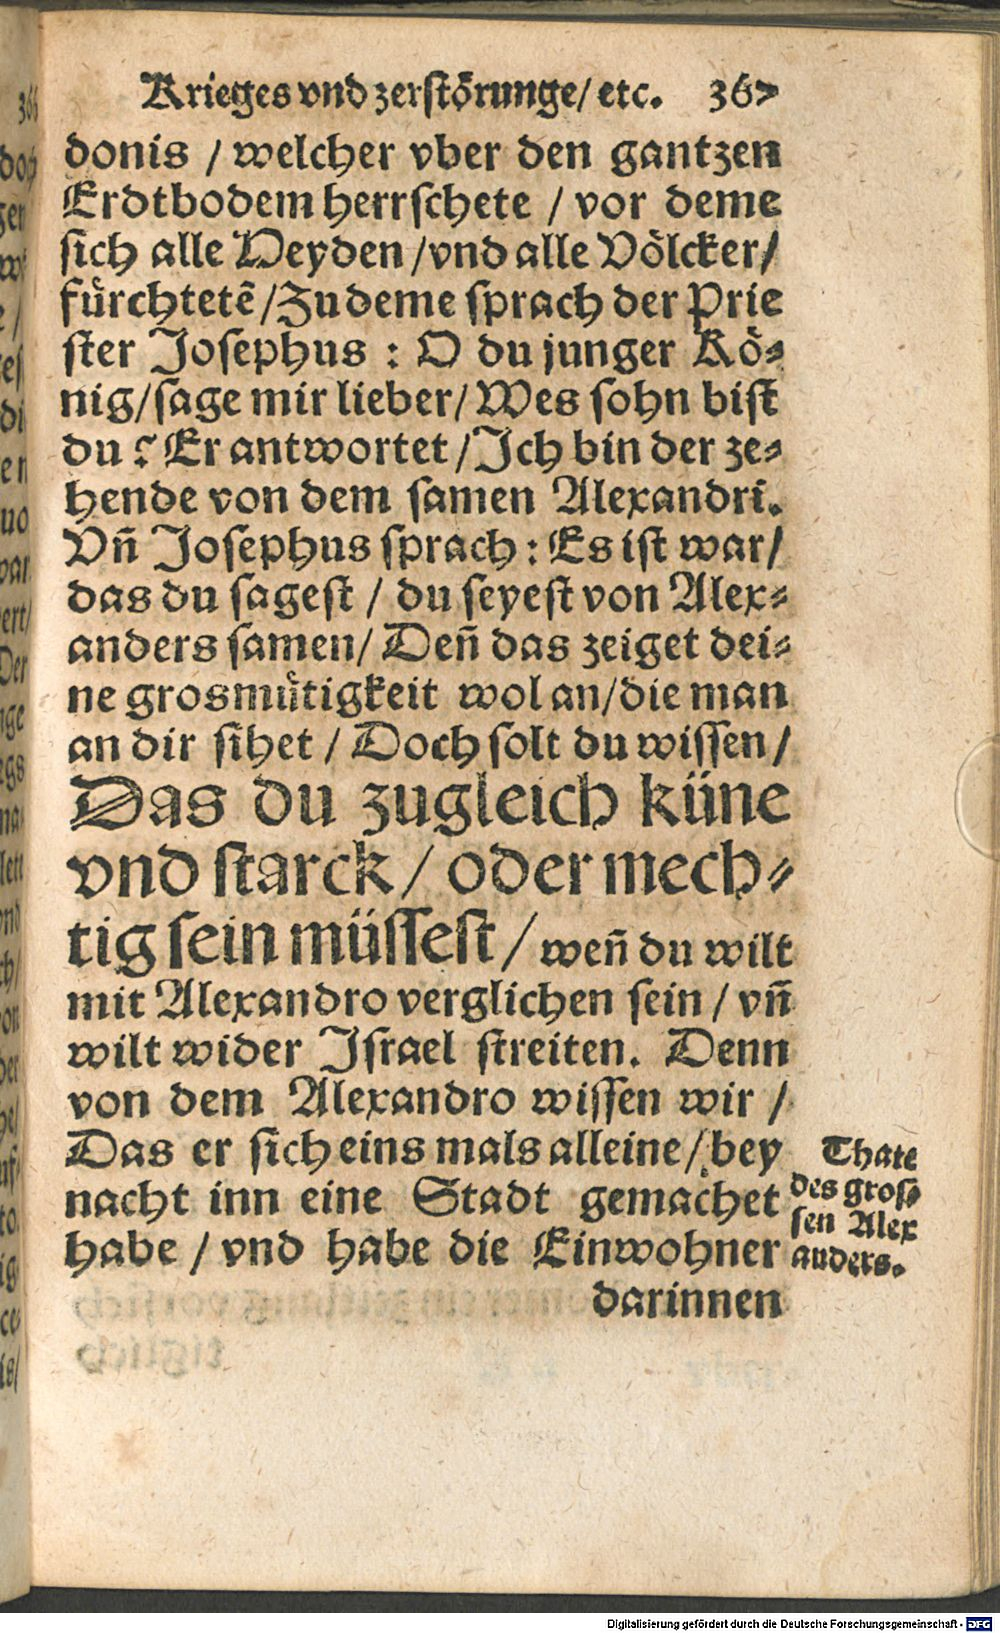 Krieges vnd zerstörunge/ etc. 367
donis / welcher vber den gantzen
Erdtbodem herrschete / vor deme
sich alle Heyden /vnd alle Völcker/
fürchtetē /Zu deme sprach der Prie
ster Josephus : O du junger Kö-
nig/sage mir lieber/ Wes sohn bist
du ? Er antwortet /Ich bin der ze-
hende von dem samen Alexandri.
Vn̄ Josephus sprach : Es ist war/
das du sagest / du seyest von Alex-
anders samen/ Den̄ das zeiget dei-
ne grosmütigkeit wol an/die man
an dir sihet / Doch solt du wissen /
Das du zugleich küne
vnd starck / oder mech-
tig sein müssest / wen̄ du wilt
mit Alexandro verglichen sein / vn̄
wilt wider Israel streiten. Denn
von dem Alexandro wissen wir /
Das er sich eins mals alleine / bey
nacht inn eine Stadt gemachet
habe / vnd habe die Einwohner
darinnen
Thate
des gros-
sen Alex
anders.
Digitalisierung gefördert durch die Deutsche Forschungsgemeinschaft - DFG